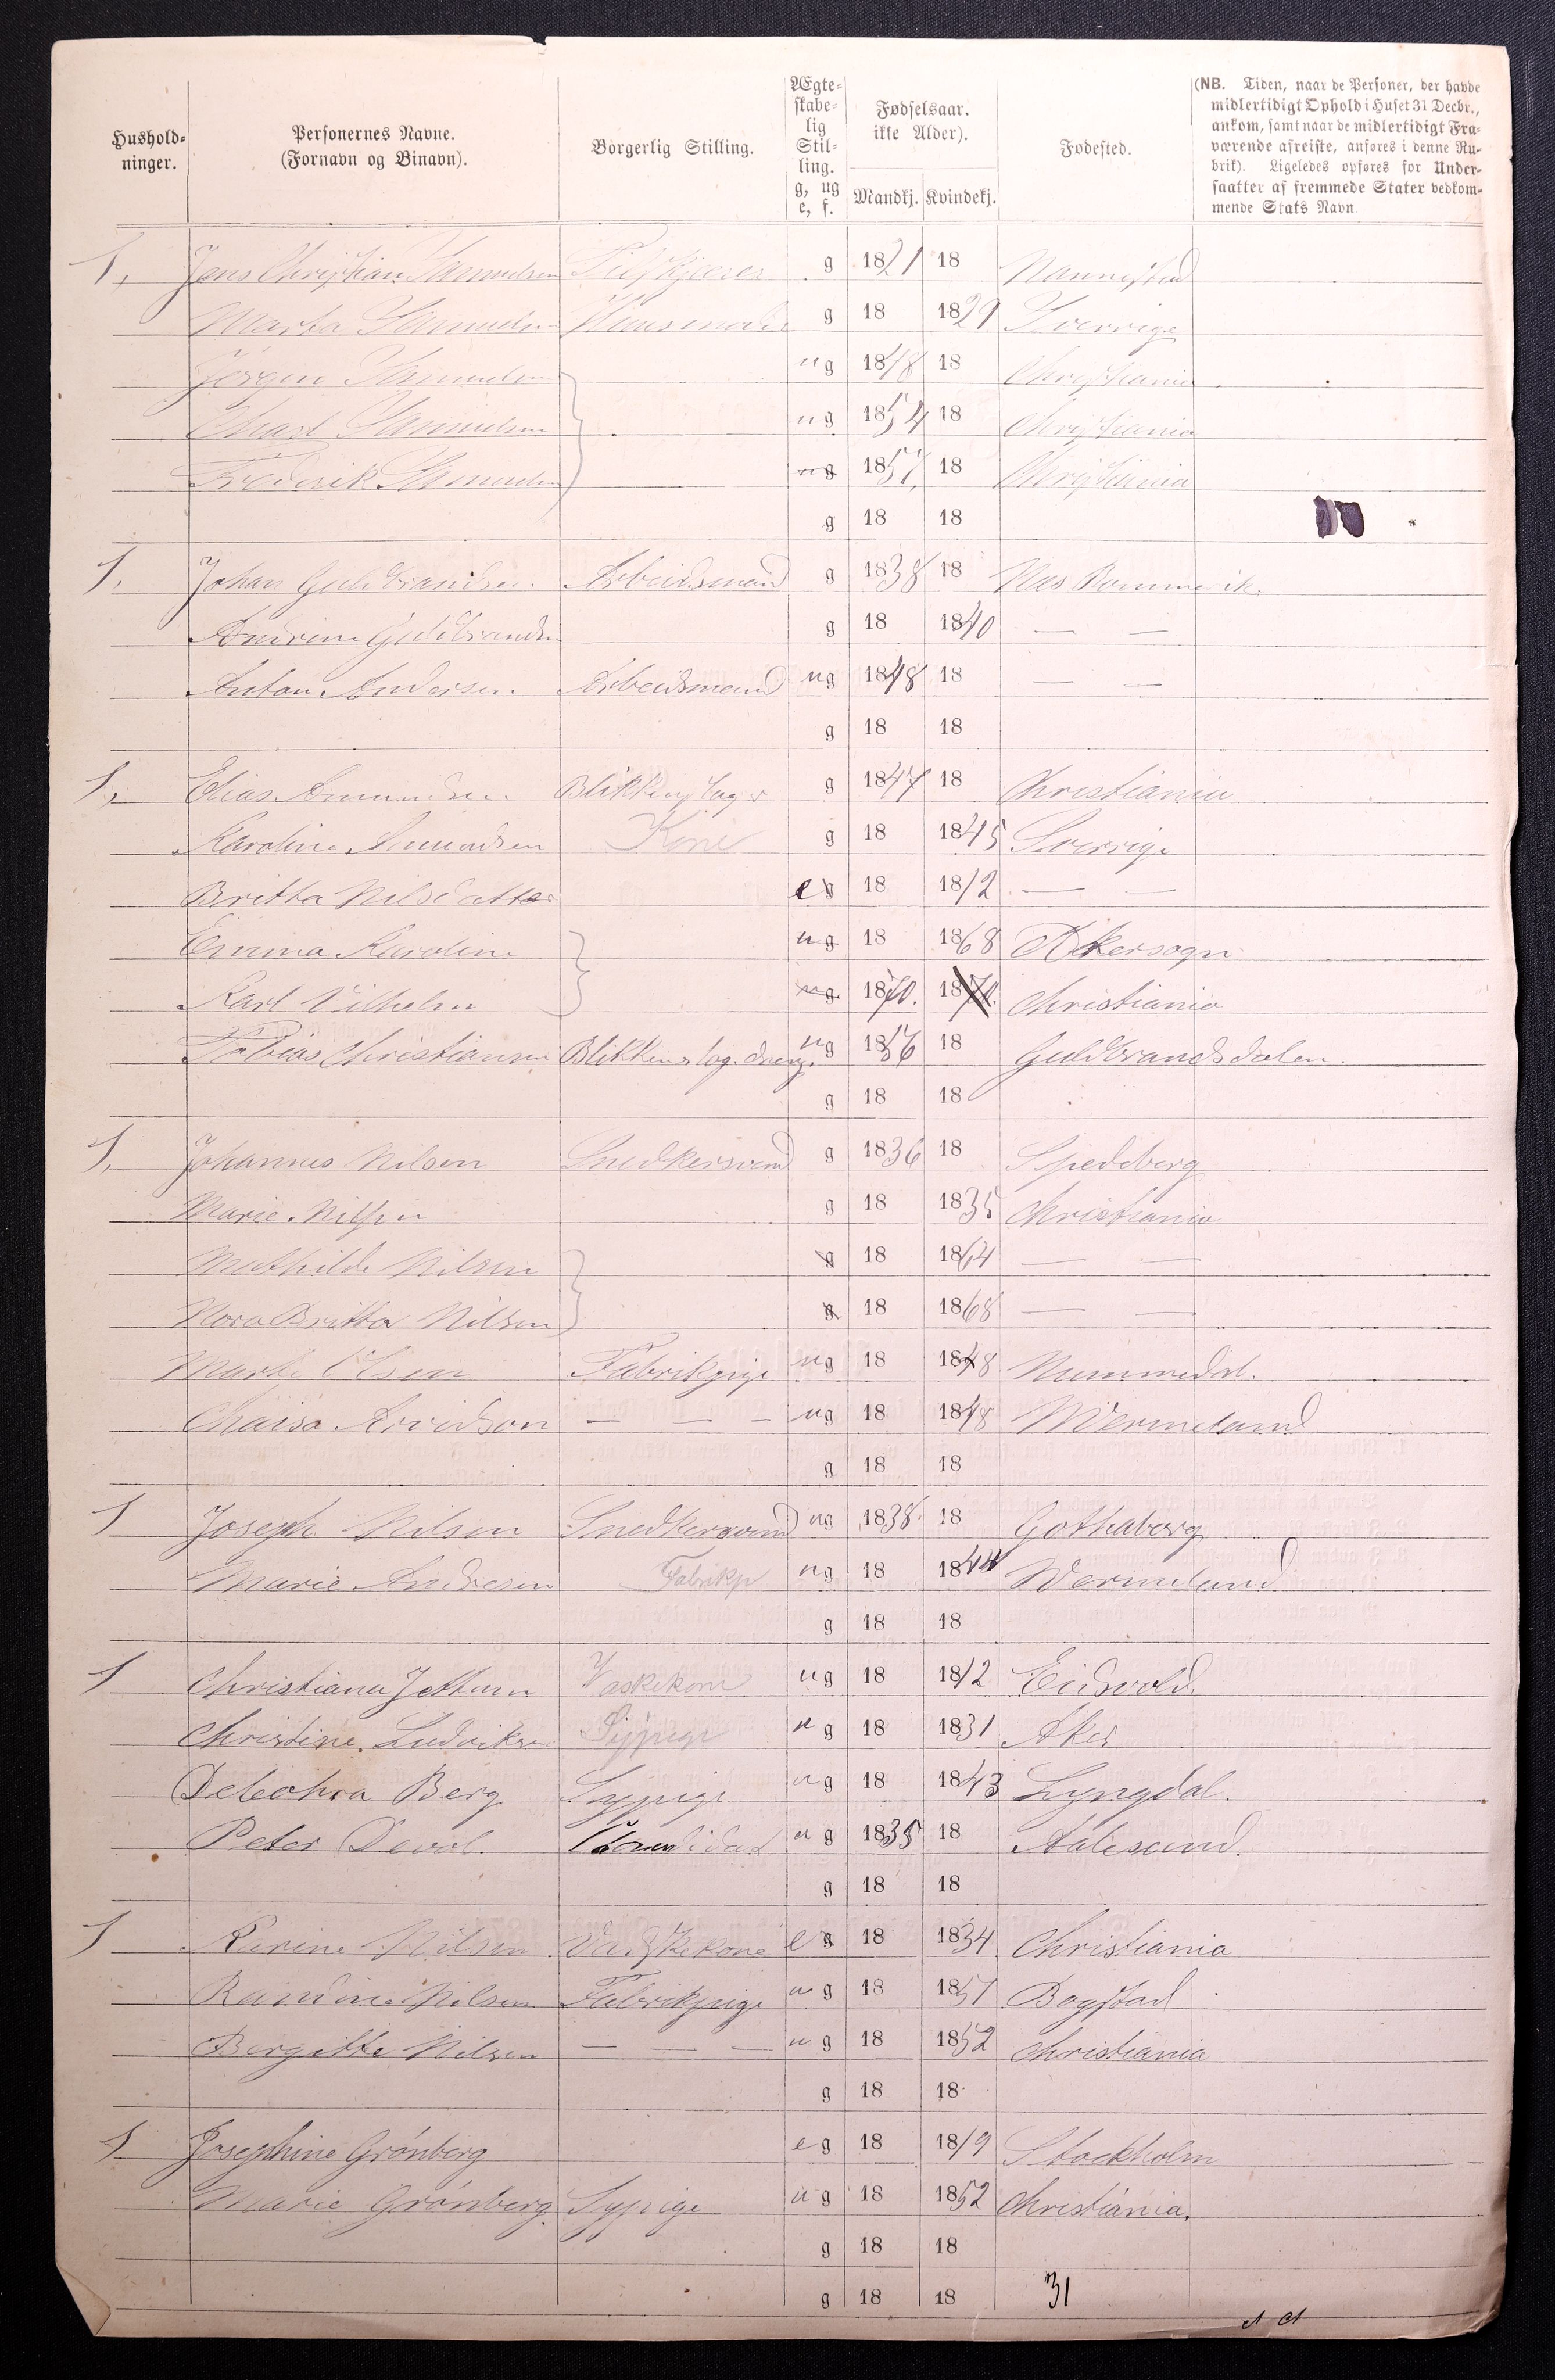 Hushold-
ninger.
Personernes Navne.
(Fornavn og Binavn).
Borgerlig Stilling.
Ægte-
skabe-
lig
Stil-
ling.
g, ug
e, f.
Fødselsaar.
ikke Alder).
Mandkj. Kvindekj.
Fødested.
(NB. Tiden, naar de Personer, der havde
midlertidigt Ophold i Huset 31 Decbr.,
ankom, samt naar de midlertidigt Fra-
værende afreiste, anføres i denne Ru-
brik). Ligeledes opføres for Under-
saatter af fremmede Stater vedkom-
mende Stats Navn.
1, Jens Christian Samuelsen g 1821 18 Nannestad
Marta Samuelsen g 18 1829 Sverrige
Jørgen Samuelsen ug 1848 18 Christiania
Samuelsen ug 1854 18 Christiania
Frederik Samuelsen ug 1857, 18 Christiania
g 18 18
1, Johan Guldbrandsen Arbeidsmand g 1838 18 Næs Rommerik.
Andrine Guldbrandsen g 18 1840 — —
Anton Andersen Arbeidsmand ug 1848 18 — —
g 18 18
1, Elias Amundsen Blikkenslager g 1847 18 Christiania
Karoline Amundsen Kone g 18 1845 Sverrige
Britta Nilsdatter e g 18 1812 — —
Emma Karoline ug 18 1868 Akersogn
Karl Vilhelm ug 1870. 1870. Christiania
Tobias Christiansen Blikkenslag. dreng. ug 1856 18 Guldbrandsdalen.
g 18 18
1, Johannes Nilsen Snedkersvend g 1836 18 Spedeberg
Marie Nilsen g 18 1835 Christiania
Mathilde Nilsen g 18 1864 — —
Nora Britta Nilsen g 18 1868 — —
Marthe Olsen Fabrikpige ug 18 1848 Nummedal.
Chaisa Arvidson — — — ug 18 1848 Wermeland
g 18 18
1 Joseph Nilsen Snedkersvend ug 1838. 18 Gothaberg
Marie Andresen Fabrikp ug 18 1844 Wermeland
g 18 18
1 Christiana Waskekone ug 18 1812 Eidsvold.
Christine Ludviksen Sypige ug 18 1831 Aker
Debohra Berg Sypige ug 18 1843 Lyngdal.
Peter Devol. ug 1835 18 Aalesund.
g 18 18
1 Karine Nilsen Vaskekone e g 18 1834 Christiania
Randine Nilsen Fabrikpige ug 18 1851 Bogstad
Birgitte Nilsen — — — ug 18 1852 Christiania
g 18 18
1 Josephine Grønberg e g 18 1819 Stockholm
Marie Grønberg. Sypige ug 18 1852 Christiania.
g 18 18
g 18 18 31